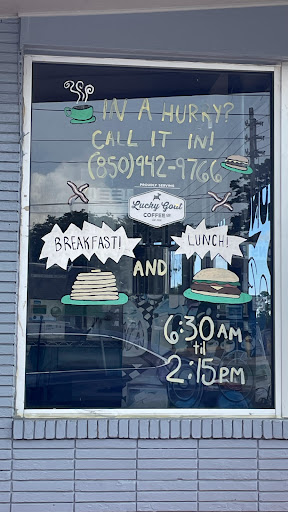 IN A HURRY?
CALL IT IN!
(850)942-9766
PROUDLY SERVING
Lucky Goat
COFFEE CO
BREAKFAST!
AND
LUNCH!
6:30 AM
til
2:15PM